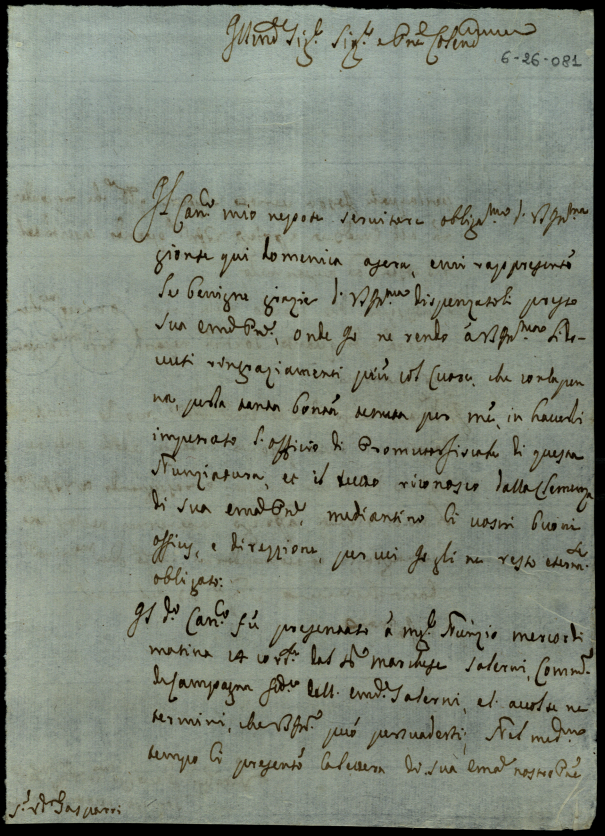 Ill.mo Sig.r Sig.r e P.ne Col.mo
6-26-081
Il Can.co mio nepote servitore obliga.mo di V.S. Ill.ma
gionse qui domenica a sera, e mi rappresentò
le benigne grazie di V.S. Ill.ma dispenzatoli presso
Sua Em.za, onde io ne rendo à V.S. Ill.ma li do-
vuti ringraziamenti più col cuore, che con la pen-
na, per la tanta bontà tenuta per me, in haverli
impetrato l'officio di Promotor fiscale di questa
Nunziatura, et il tutto riconosco dalla Clemenza
di Sua Em.za, mediantino li vostri buoni
officij, e direzzione, per cui io gli ne resto
obligato.
Il d.o Can.co fù presentato à Mg.r Nunzio mercordi
matina 14 corr.te dal S.r Marchese Salerni,
di Campagna dell' Em.o Salerni, et accolse ne
termini, che V.S. Ill. può persuadersi; Nel med.mo
tempo li presentò la lettera di Sua Em.za nostro P.ne
S.r Gasparri